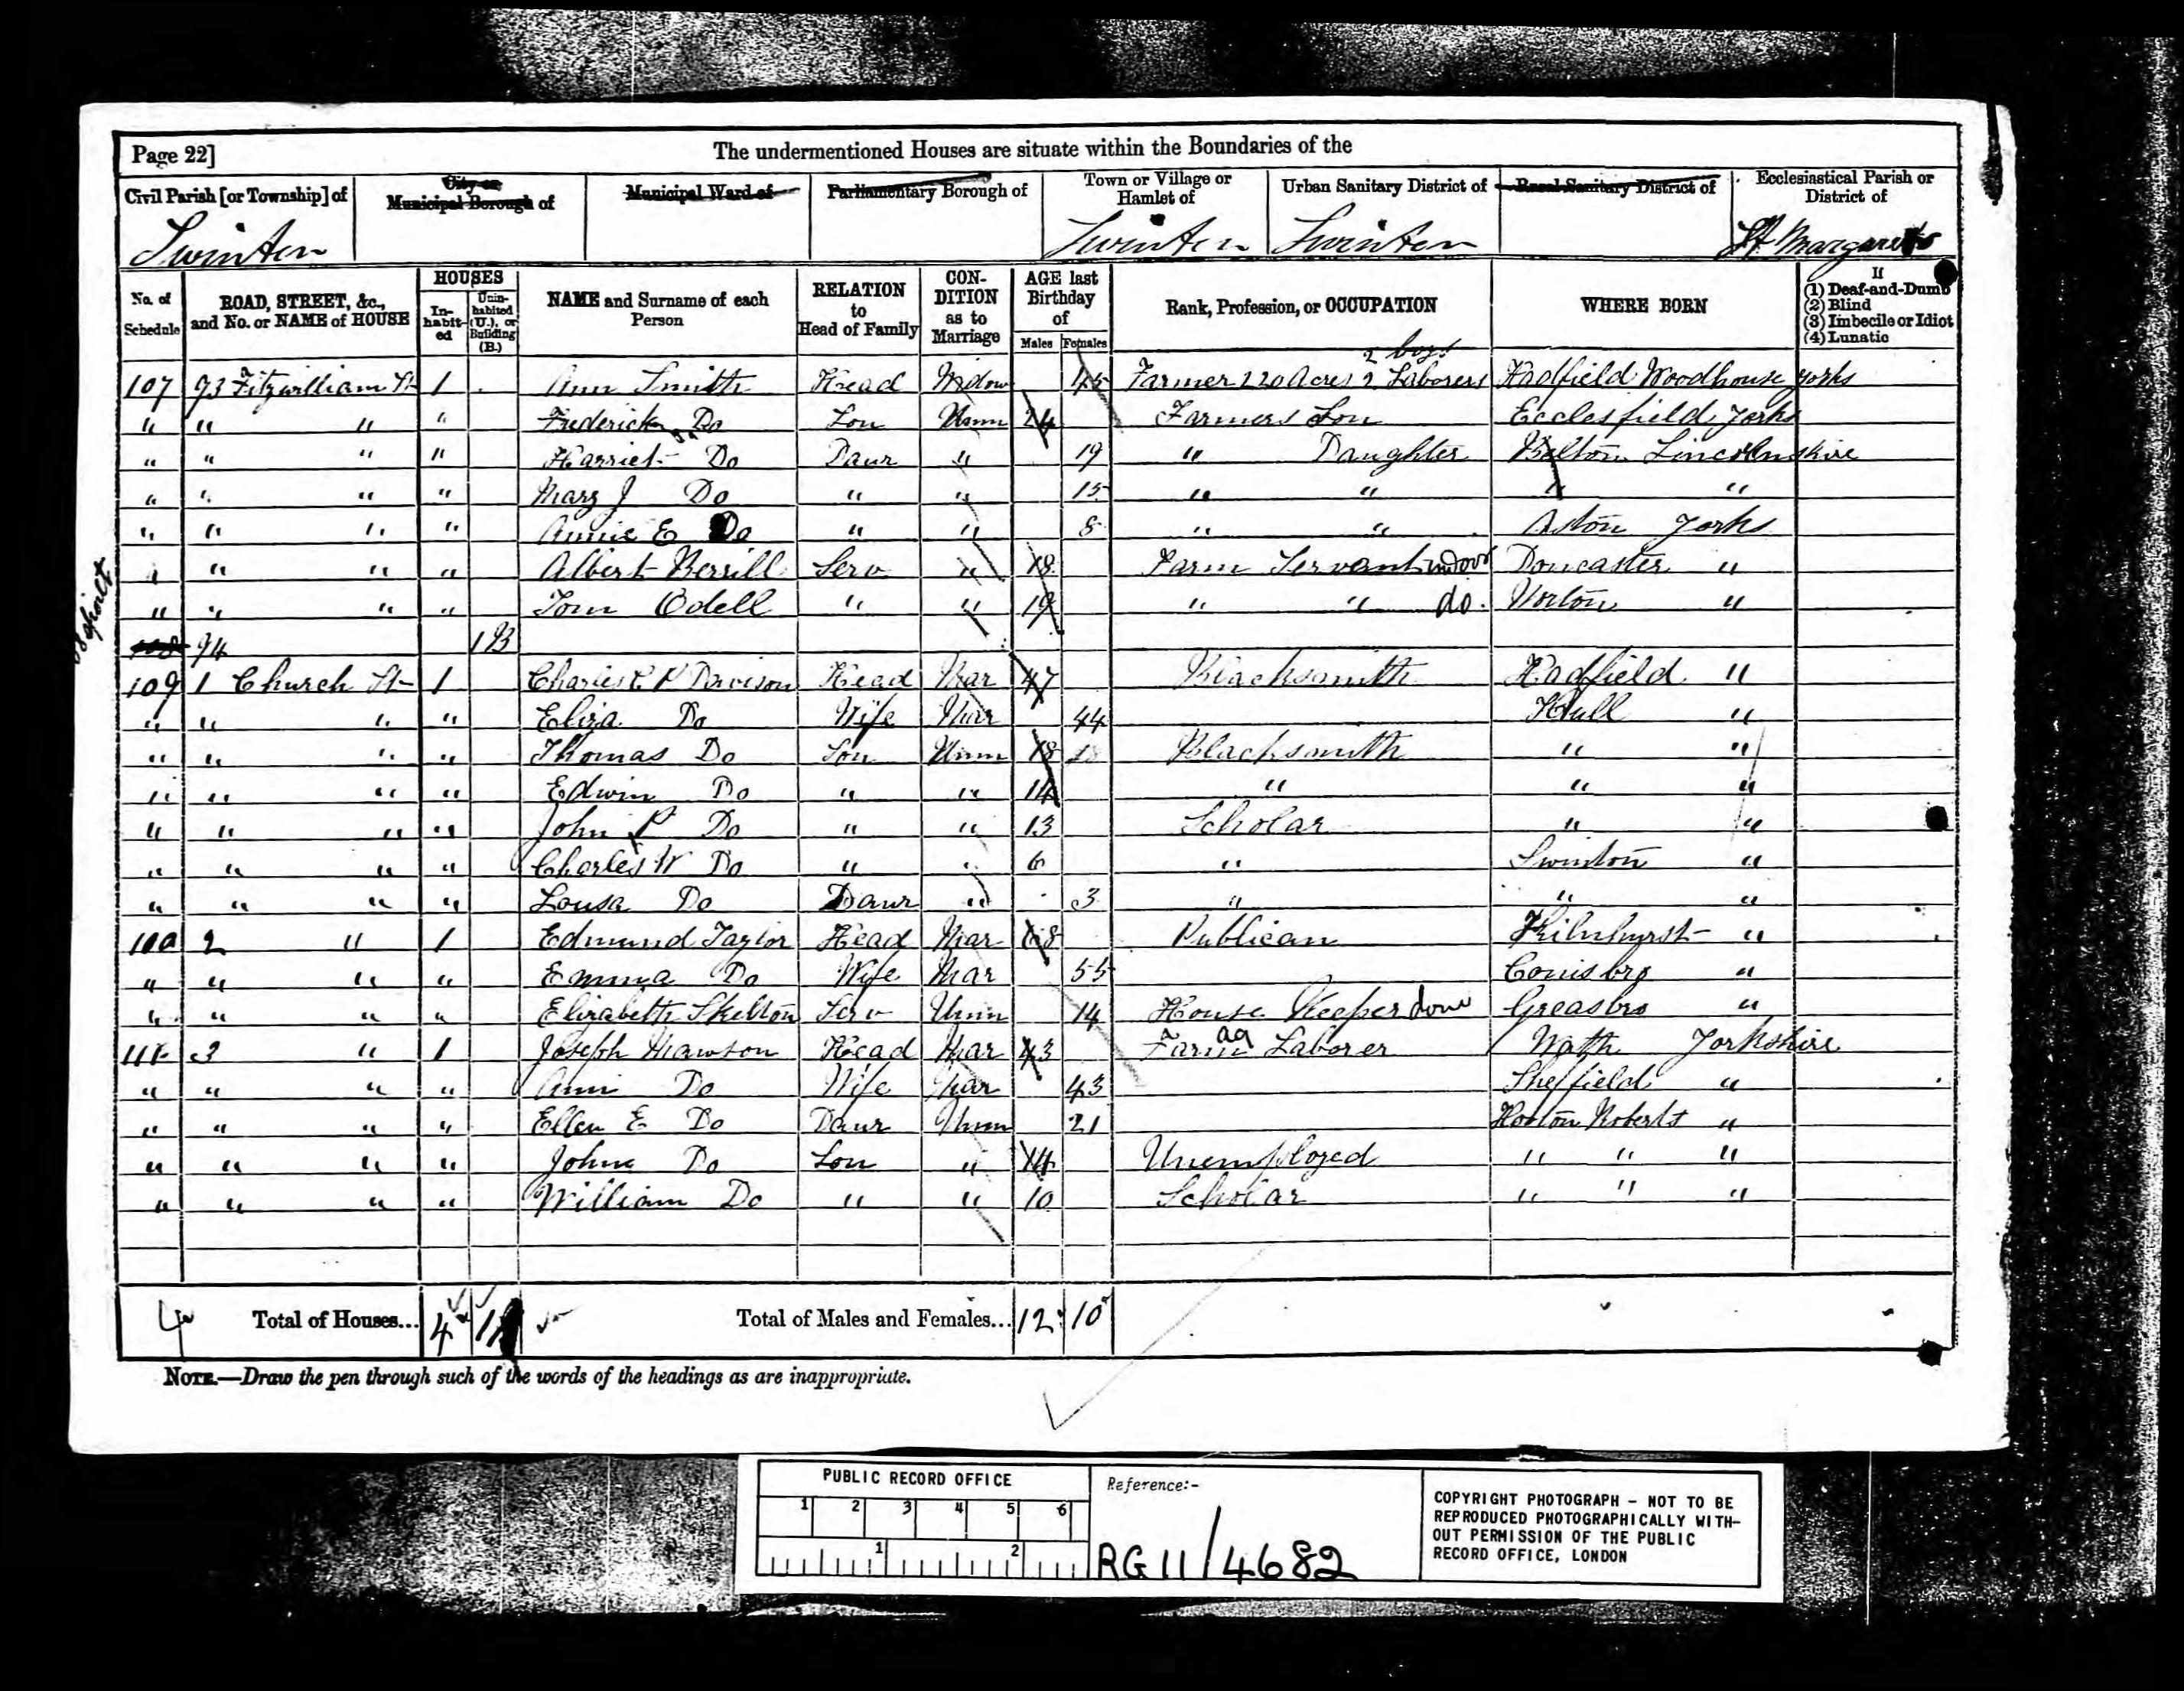 Page 22]
The undermentioned Houses are situate within the Boundaries of the
Civil Parish [or Township] of
City or Municipal Borough of
Municipal Ward of
Parliamentary Borough of
Town or Village or Hamlet of
Urban Sanitary District of
Rural Sanitary District of
Ecclesiastical Parish or District of
Swinton Swinton Swinton St Margarets
No. of Schedule
ROAD, STREET, &c., and No. or NAME of HOUSE
HOUSES
Inhabited
Uninhabited (U.), or Building (B.)
NAME and Surname of each Person
RELATION to Head of Family
CONDITION as to Marriage
AGE last Birthday of
Males Females
Rank, Profession, or OCCUPATION
WHERE BORN
If
(1) Deaf-and-Dumb
(2) Blind
(3) Imbecile or Idiot
(4) Lunatic
2 boys
107 93 Fitzwilliam St 1 Ann Smith Head Widow 45 Farmer 220 Acres 2 Laborers Hadfield Woodhouse Yorks
" " " " Frederick Do Son Unm 24 Farmers Son Ecclesfield Yorks
" " " " Harriet Do Daur " 19 " Daughter Belton Lincolnshire
" " " " Mary J Do " " 15 " " " "
" " " " Annie E Do " " 8 " " Aston Yorks
" " " " Albert Berrill Serv " 18 Farm Servant indoor Doncaster "
" " " " Tom Odell " " 19 " " do. Norton "
108 94 1 B
109 1 Church St 1 Charles P Davison Head Mar 47 Blacksmith Hadfield "
" " " " Eliza Do Wife Mar 44 Hull "
" " " " Thomas Do Son Unm 18 Blacksmith " "
" " " " Edwin Do " " 14 " " "
" " " " John P Do " " 13 Scholar " "
" " " " Charles W Do " " 6 " Swinton "
" " " " Lousa Do Daur " 3 " " "
110 2 " 1 Edmund Taylor Head Mar 68 Publican Kilnhurst "
" " " " Emma Do Wife Mar 55 Conisbro "
" " " " Elizabeth Skelton Serv Unm 14 House Keeper dom Greasbro "
111 3 " 1 Joseph Mawson Head Mar 43 Farm ag Laborer Wath Yorkshire
" " " " Ann Do Wife Mar 43 Sheffield "
" " " " Ellen E Do Daur Unm 21 Hooton Roberts "
" " " " John Do Son " 14 Unemployed " " "
" " " " William Do " " 10 Scholar " " "
4 Total of Houses... 4 1 B Total of Males and Females... 12 10
NOTE.—Draw the pen through such of the words of the headings as are inappropriate.
PUBLIC RECORD OFFICE
1 2 3 4 5 6
1 2
Reference:-
RG 11/4682
COPYRIGHT PHOTOGRAPH – NOT TO BE
REPRODUCED PHOTOGRAPHICALLY WITH-
OUT PERMISSION OF THE PUBLIC
RECORD OFFICE, LONDON